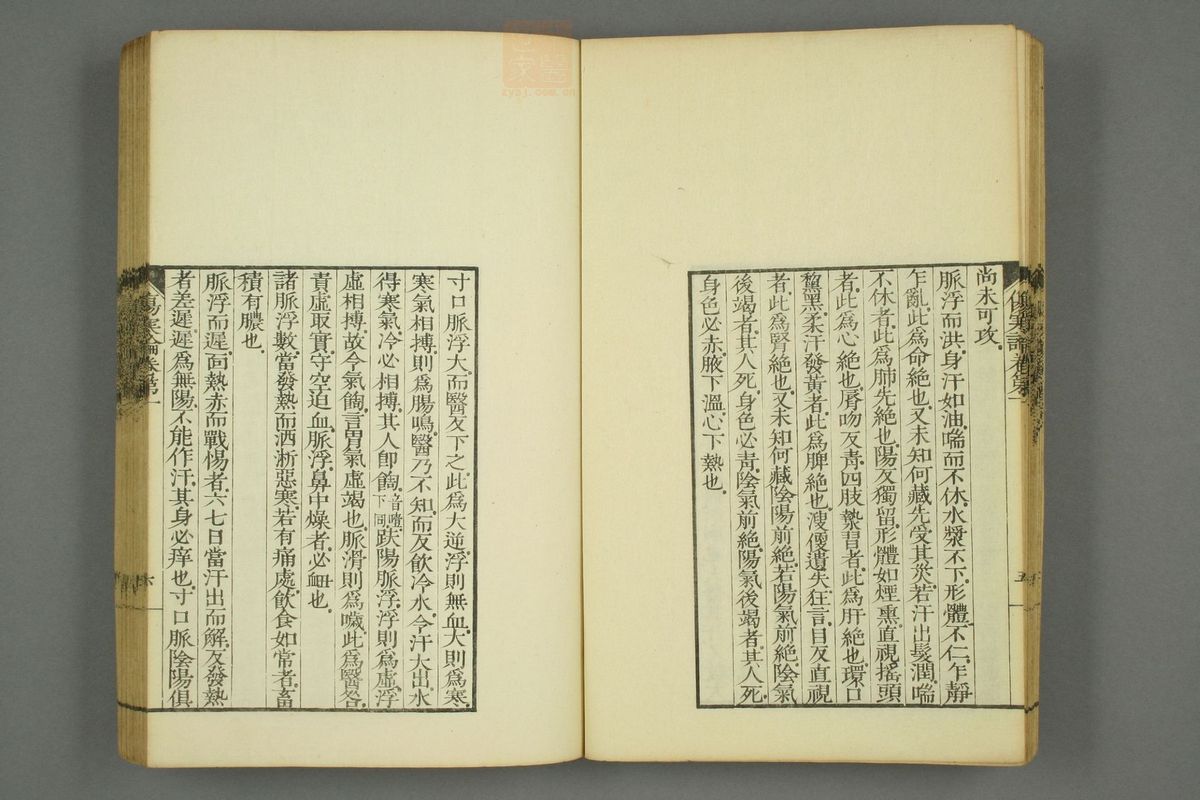 尚未可攻。
脈浮而洪。身汗如油。喘而不休。水漿不下。形體不仁。乍靜
乍亂。此爲命絶也。又未知何藏先受其災。若汗出髮潤。喘
不休者。此爲肺先絶也。陽反獨留。形體如煙熏。直視搖頭
者。此爲心絶也。脣吻反青。四肢漐習者。此爲肝絶也。環口
黧黑。柔汗發黃者。此爲脾絶也。溲便遺失。狂言。目反直視
者。此爲腎絶也。又未知何藏陰陽前絶。若陽氣前絶。陰氣
後竭者。其人死。身色必青。陰氣前絶。陽氣後竭者。其人死。
身色必赤。腋下溫。心下熱也。
傷寒論卷第一
五
寸口脈浮大。而醫反下之。此爲大逆。浮則無血。大則爲寒。
寒氣相搏。則爲腸鳴。醫乃不知。而反飲冷水。令汗大出。水
得寒氣。冷必相搏。其人卽䭇。音噎下同 趺陽脈浮。浮則爲虛。浮
虛相搏。故令氣䭇。言胃氣虛竭也。脈滑則爲噦。此爲醫咎。
責虛取實。守空迫血。脈浮。鼻中燥者。必衄也。
諸脈浮數。當發熱而洒淅惡寒。若有痛處。飲食如常者。畜
積有膿也。
脈浮而遲。面熱赤而戰惕者。六七日當汗出而解。反發熱
者差遲。遲爲無陽。不能作汗。其身必痒也。寸口脈陰陽俱
傷寒論卷第一
六
zysj.com.cn